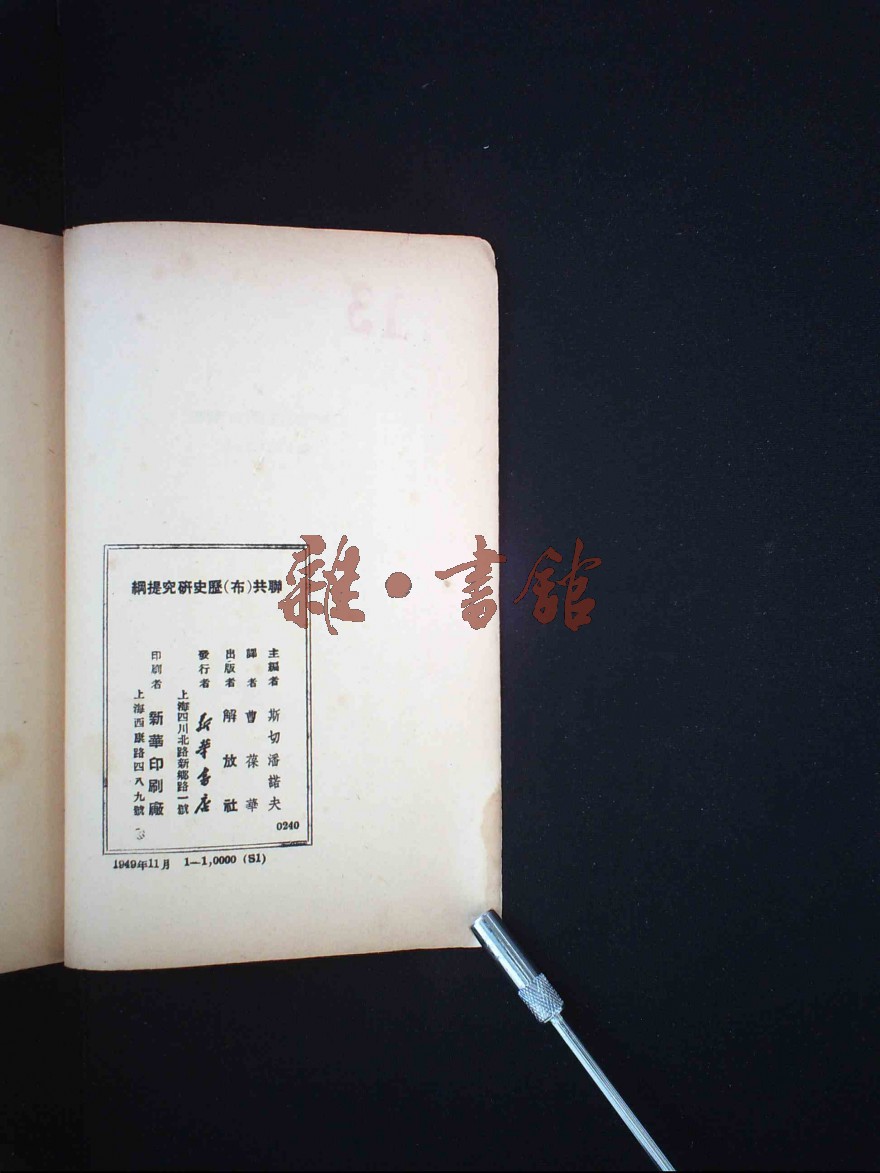 聯共(布)歷史研究提綱
主編者 斯切潘諾夫
譯者 曹葆華
出版者 解放社
發行者 新華書店
上海四川北路新鄉路一號
印刷者 新華印刷廠
上海西康路四八九號
0240
1949年11月 1—1,0000 (S1)
雜·書館
13